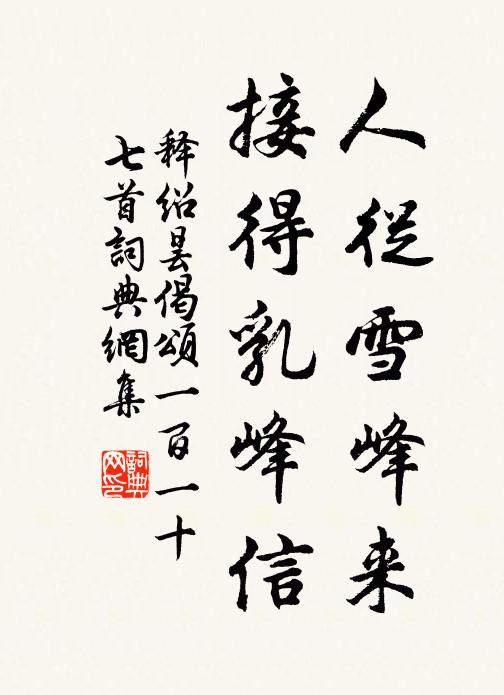 人從雪峰来
接得乳峰信
释绍昙偈頌一百一十
七首詞典網集
詞典网印